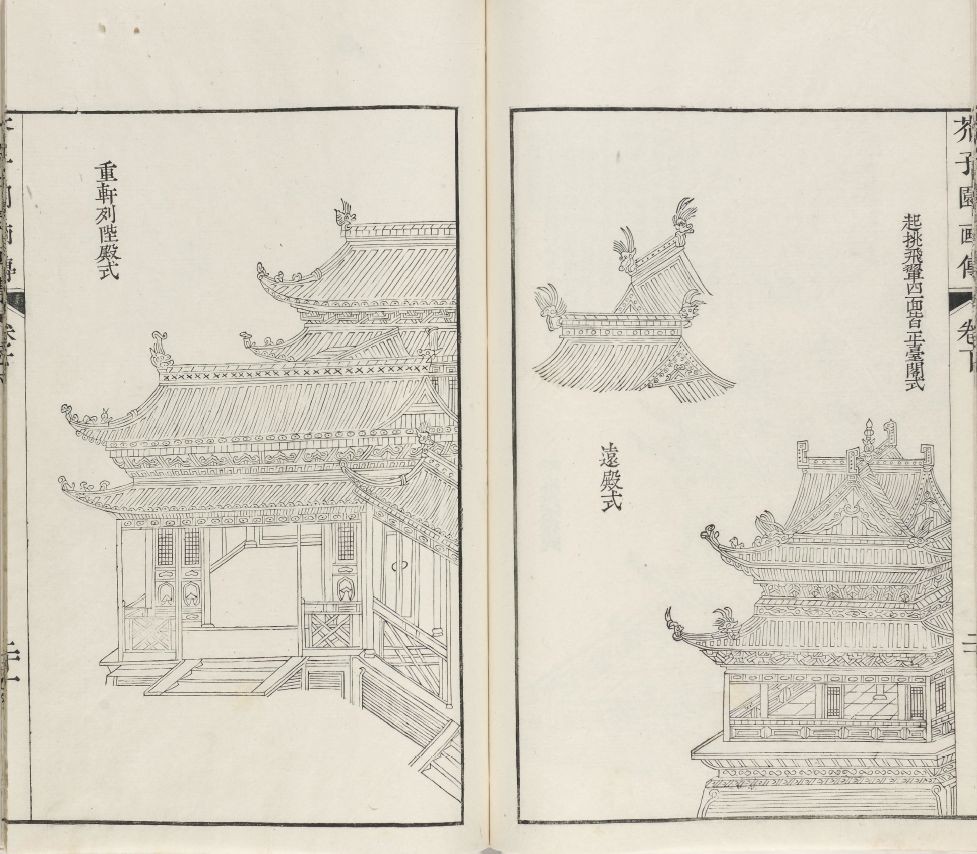 芥子園画傳
卷下
起挑飛翬四面皆正臺閣式
遠殿式
重軒列陛殿式